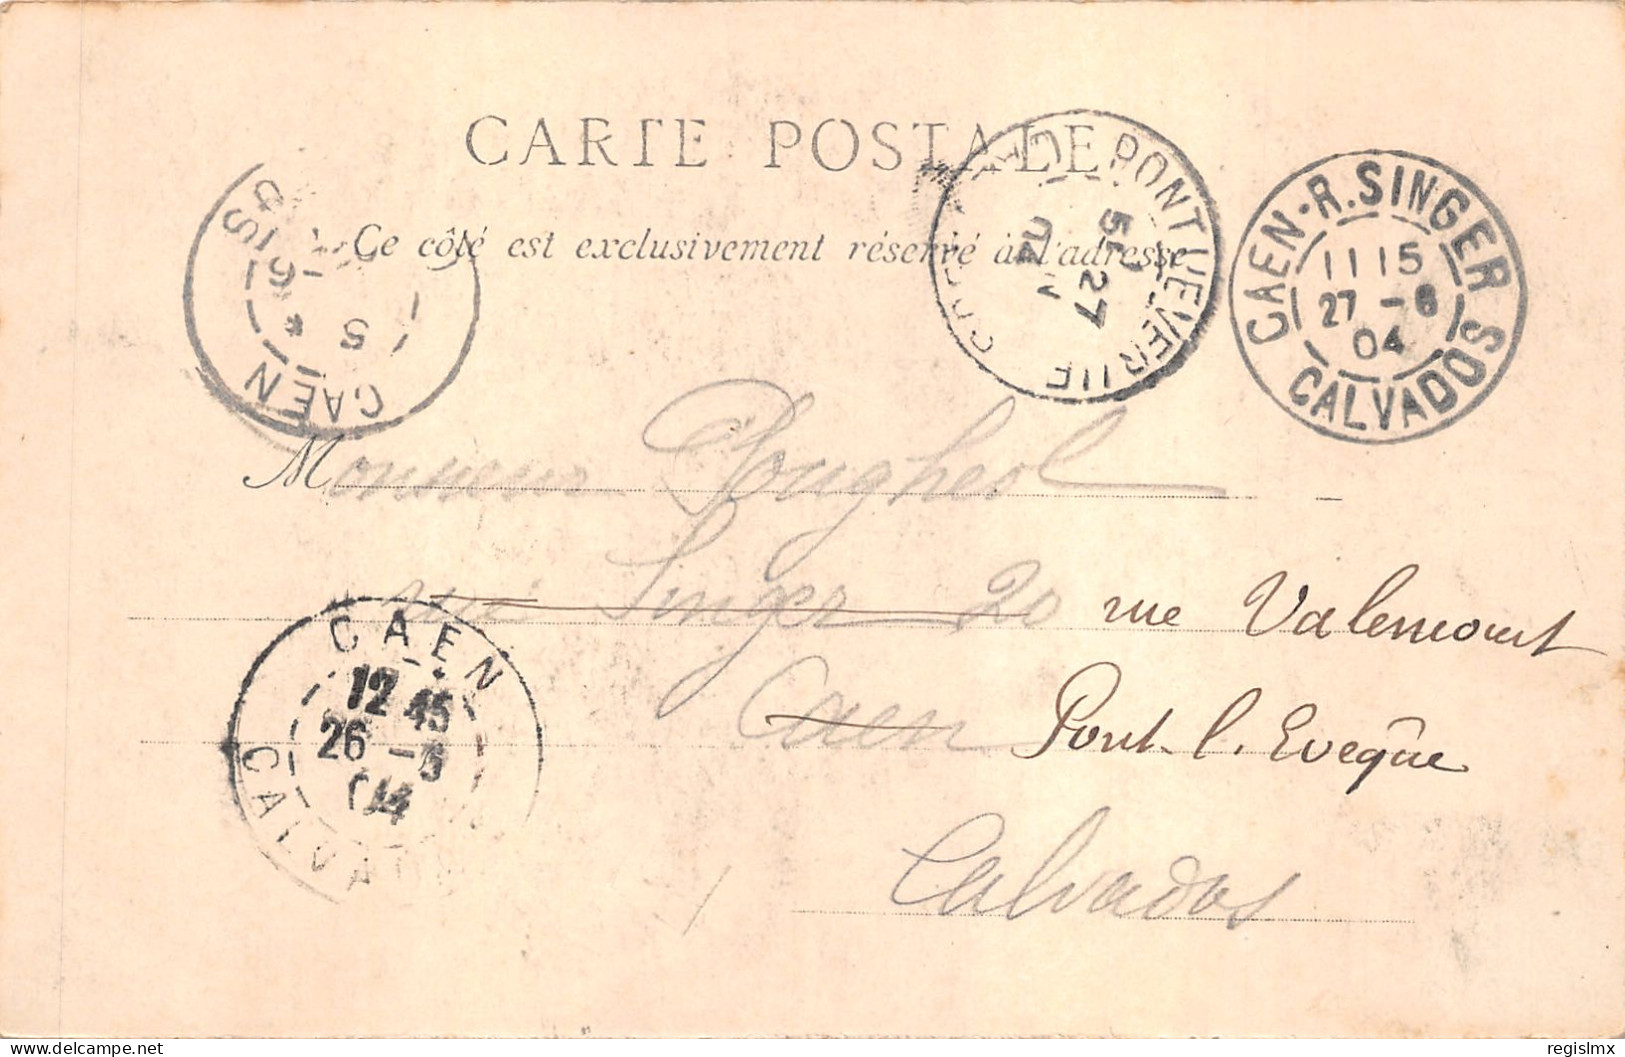 CARTE POSTALE
Ce côté est exclusivement réservé à l'adresse
CAEN
5
PONT L'EVEQUE
27
04
CAEN-R. SINGER
11 15
27 -6
04
CALVADOS
Monsieur Pougheol
rue Singer 20 rue Valemont
Caen Pont-l. Evêque
Calvados
CAEN
12 45
26 -6
04
CALVA
delcampe.net
regislmx